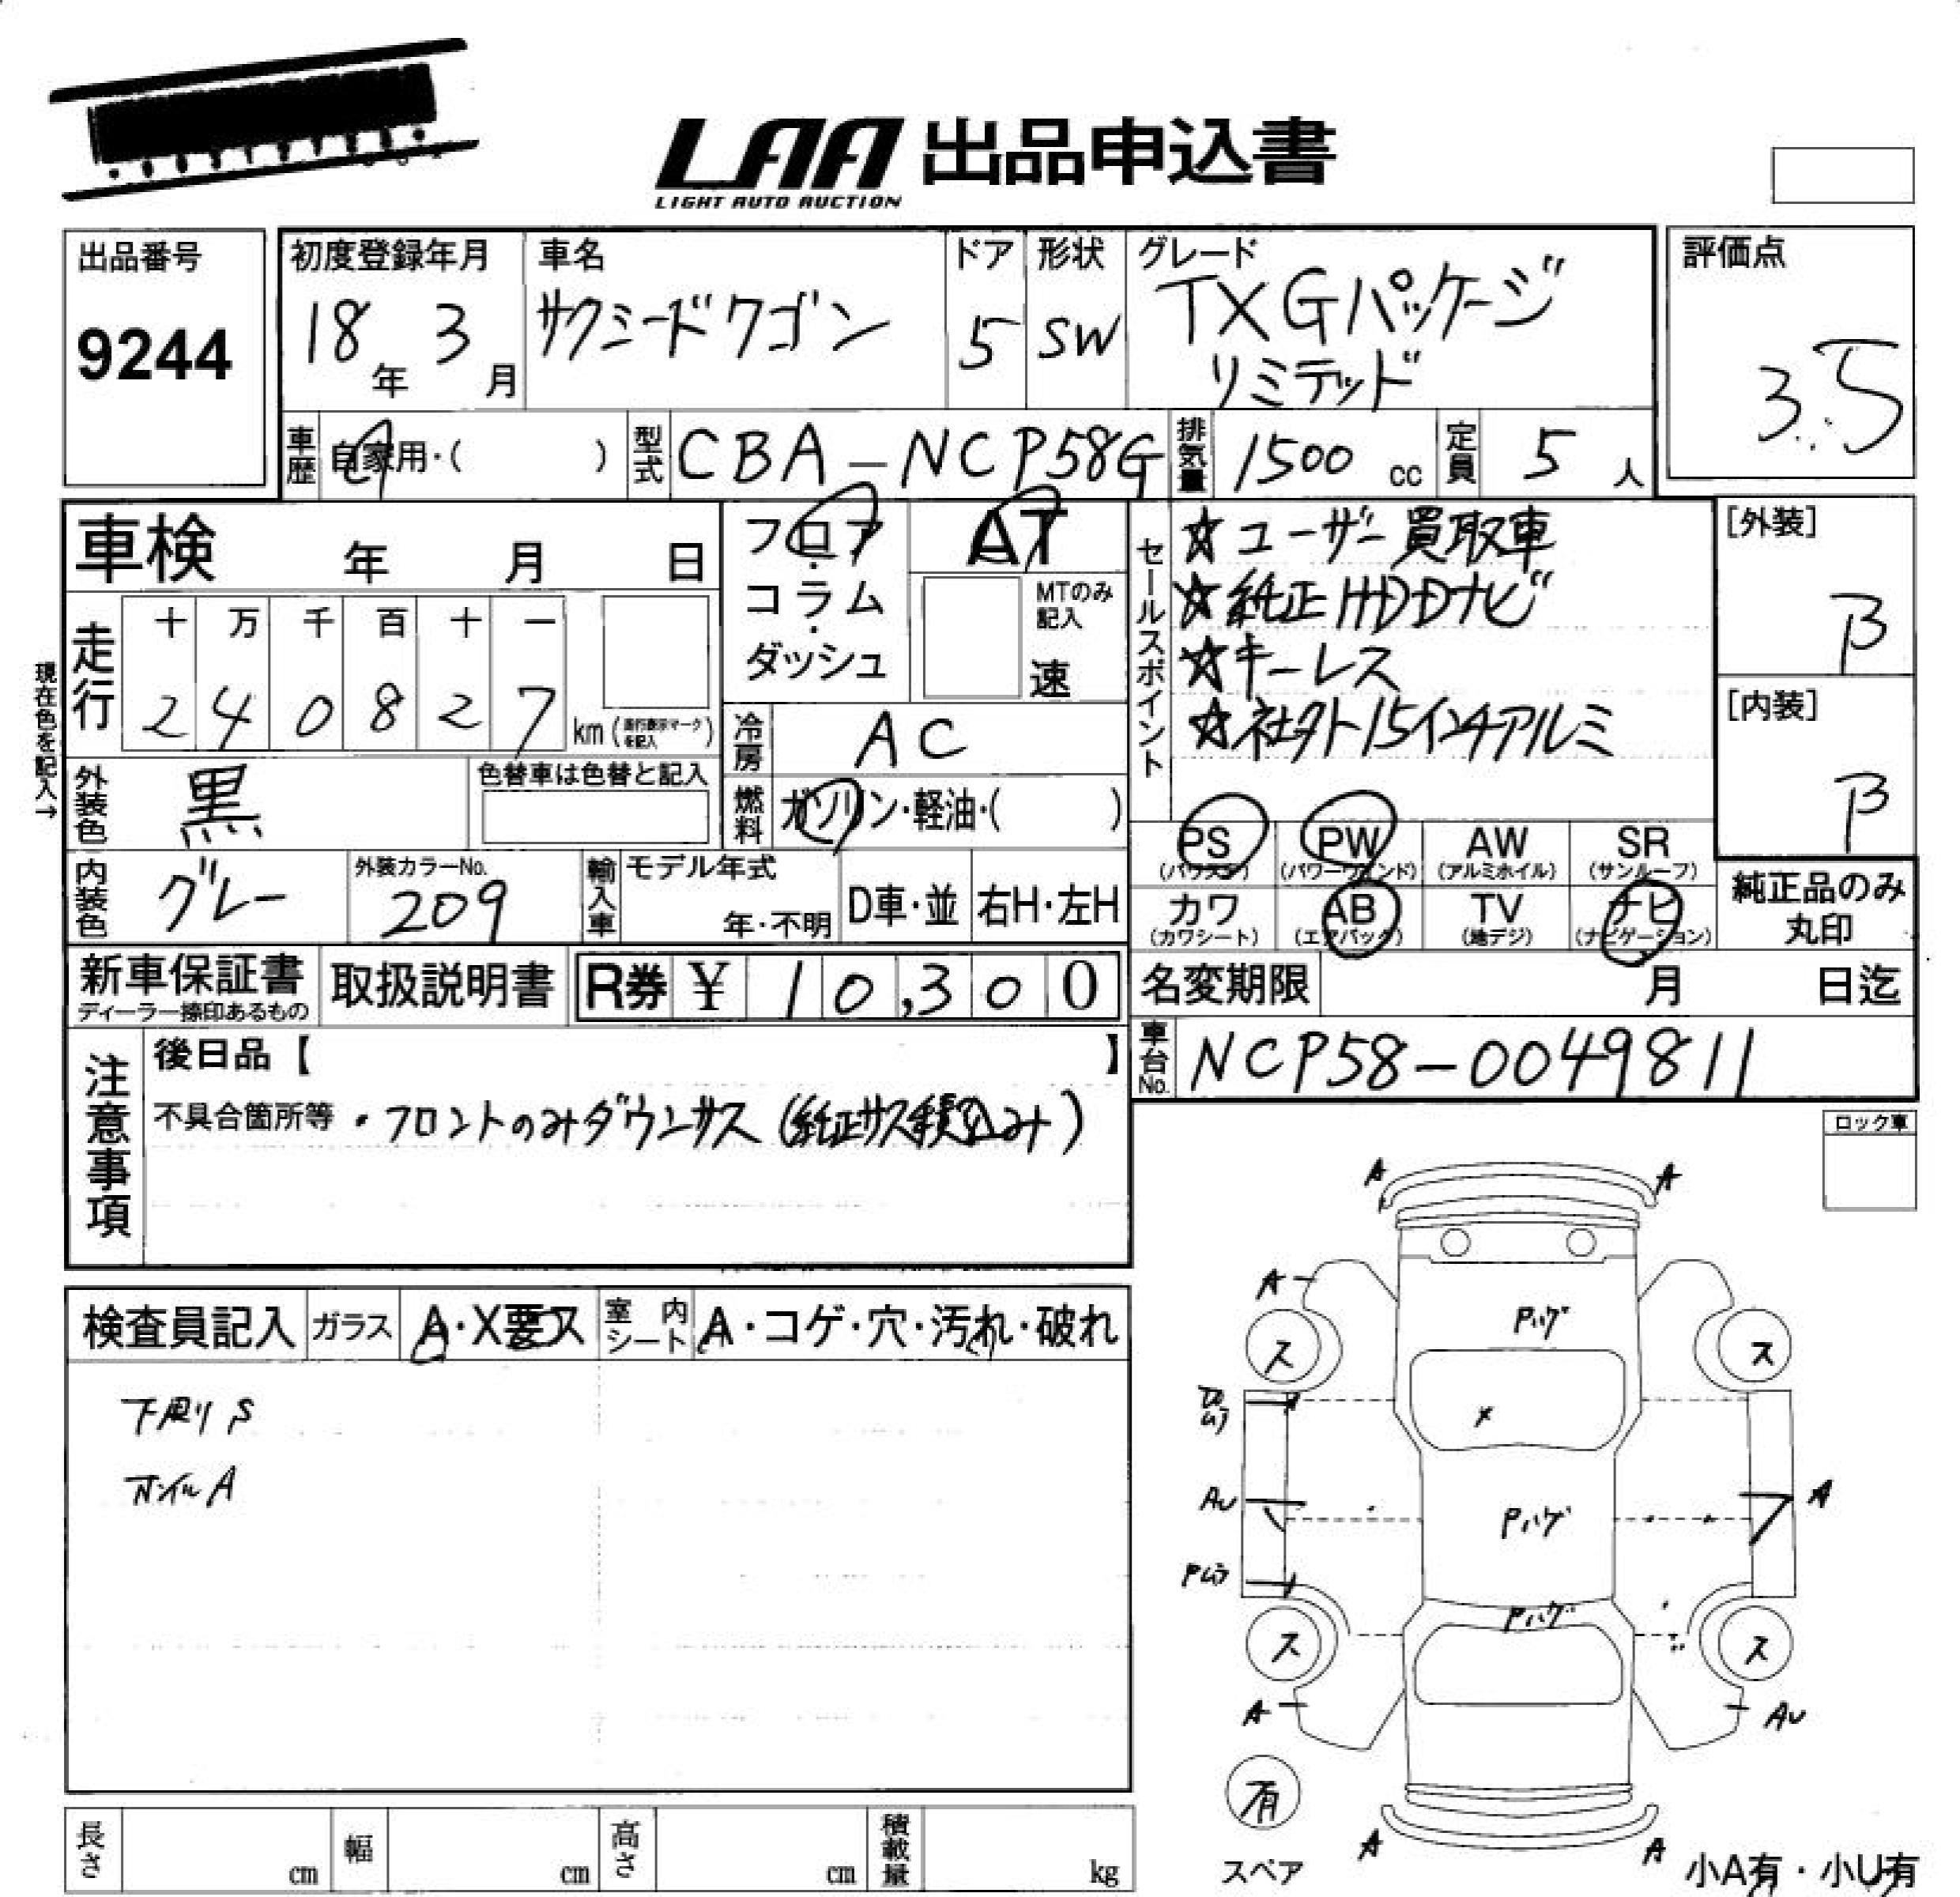 LAA 出品申込書
LIGHT AUTO AUCTION
出品番号
9244
初度登録年月
18年 3月
車名
サクシードワゴン
ドア
5
形状
SW
グレード
TX Gパッケージ
リミテッド
評価点
3.5
車歴
自家用・( )
型式
CBA-NCP58G
排気量
1500 cc
定員
5 人
車検 年 月 日
フロア・コラム・ダッシュ
AT
MTのみ記入
速
現在色を記入→
走行
十 万 千 百 十 一
2 4 0 8 2 7 km (走行表示マークを記入)
冷房
AC
燃料
ガソリン・軽油・( )
外装色
黒
色替車は色替と記入
内装色
グレー
外装カラーNo.
209
輸入車
モデル年式
年・不明
D車・並
右H・左H
セールスポイント
☆ユーザー買取車
☆純正HDDナビ
☆キーレス
☆社外15インチアルミ
[外装]
B
[内装]
B
PS (パワステ)
PW (パワーウインド)
AW (アルミホイル)
SR (サンルーフ)
カワ (カワシート)
AB (エアバック)
TV (地デジ)
ナビ (ナビゲーション)
純正品のみ丸印
新車保証書
ディーラー捺印あるもの
取扱説明書
R券 ¥ 10,300
名変期限 月 日迄
車台No.
NCP58-0049811
注意事項
後日品【 】
不具合箇所等 ・フロントのみダウンサス(純正サス積込み)
ロック車
検査員記入
ガラス
A・X要ス
室内シート
A・コゲ・穴・汚れ・破れ
下廻りS
ホイルA
A A
A
Pハゲ
ス ス
X
AU
Pハゲ
A
Pハゲ
ス ス
A
AU
有
スペア
A A
小A有・小U有
長さ cm
幅 cm
高さ cm
積載量 kg